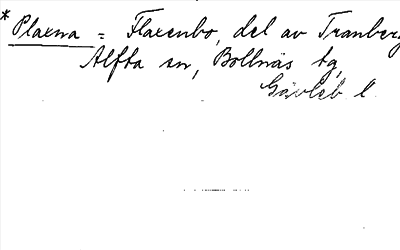 * Plaxna = Flaxenbo, del av Tranberg,
Alfta sn, Bollnäs tg,
Gävleb. l.